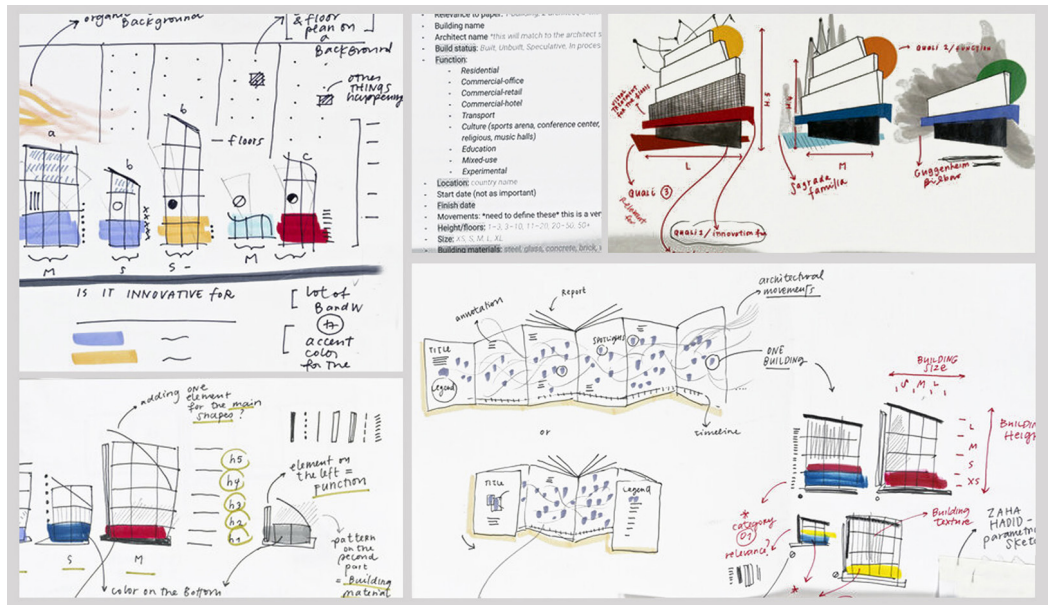 organic
Background
& floor
plan on
a
Background
other
THINGS
happening
a
b
b
c
floors
M
S
S -
M
IS IT INNOVATIVE FOR
lot of
B and W
+
accent
color
for the
Building name
Architect name *this will match to the architect s
Build status: Built, Unbuilt, Speculative, In proces
Function:
Residential
Commercial-office
Commercial-retail
Commercial-hotel
Transport
Culture (sports arena, conference center,
religious, music halls)
Education
Mixed-use
Experimental
Location: country name
Start date (not as important)
Finish date
Movements: *need to define these* this is a ver
Height/floors: 1-3, 3-10, 11-20, 20-50, 50+
Size: XS, S, M, L, XL
Building materials: steel, glass, concrete, brick,
visual
treatment
for the floors
H:5
L
QUALI 3
Relevant
for
QUALI 2/innovation for
QUALI 2/FUNCTION
M
Sagrada
familia
Guggenheim
Bilbao
adding one
element
for the main
shapes?
h5
h4
h3
h2
h1
S
M
element on
the left =
function
pattern
on the
second
part
= Building
material
color on the Bottom
annotation
Report
architectural
movements
TITLE
Legend
SPOTLIGHTS
ONE
BUILDING
timeline
or
TITLE
Legend
BUILDING
SIZE
S M L
L
M
S
XS
BUILDIN
HEIGH
* category
01
relevance?
Building
texture
ZAHA
HADID -
parametri
Sketc
*